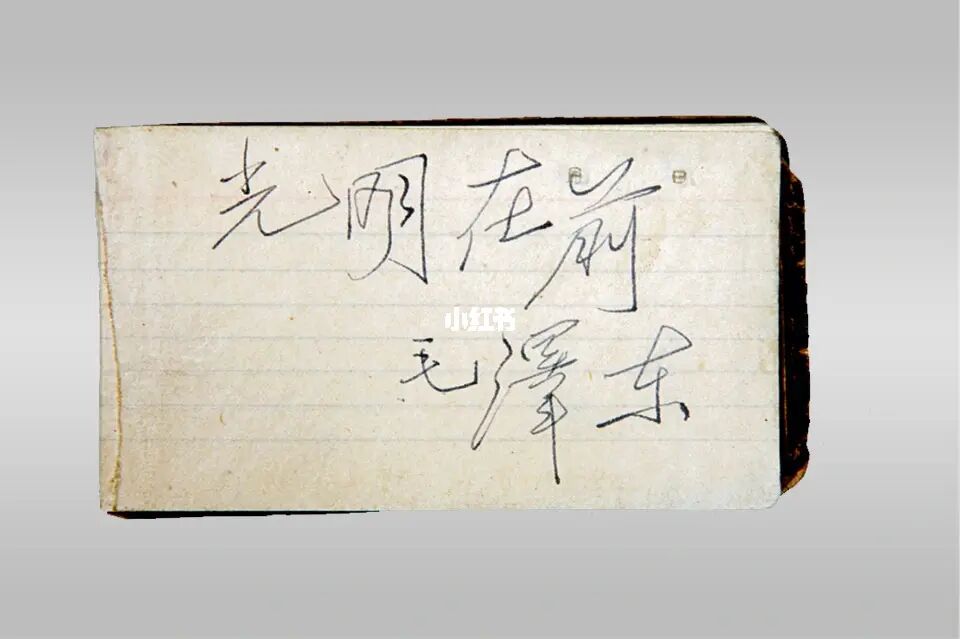 光明在前
小红书
毛澤东